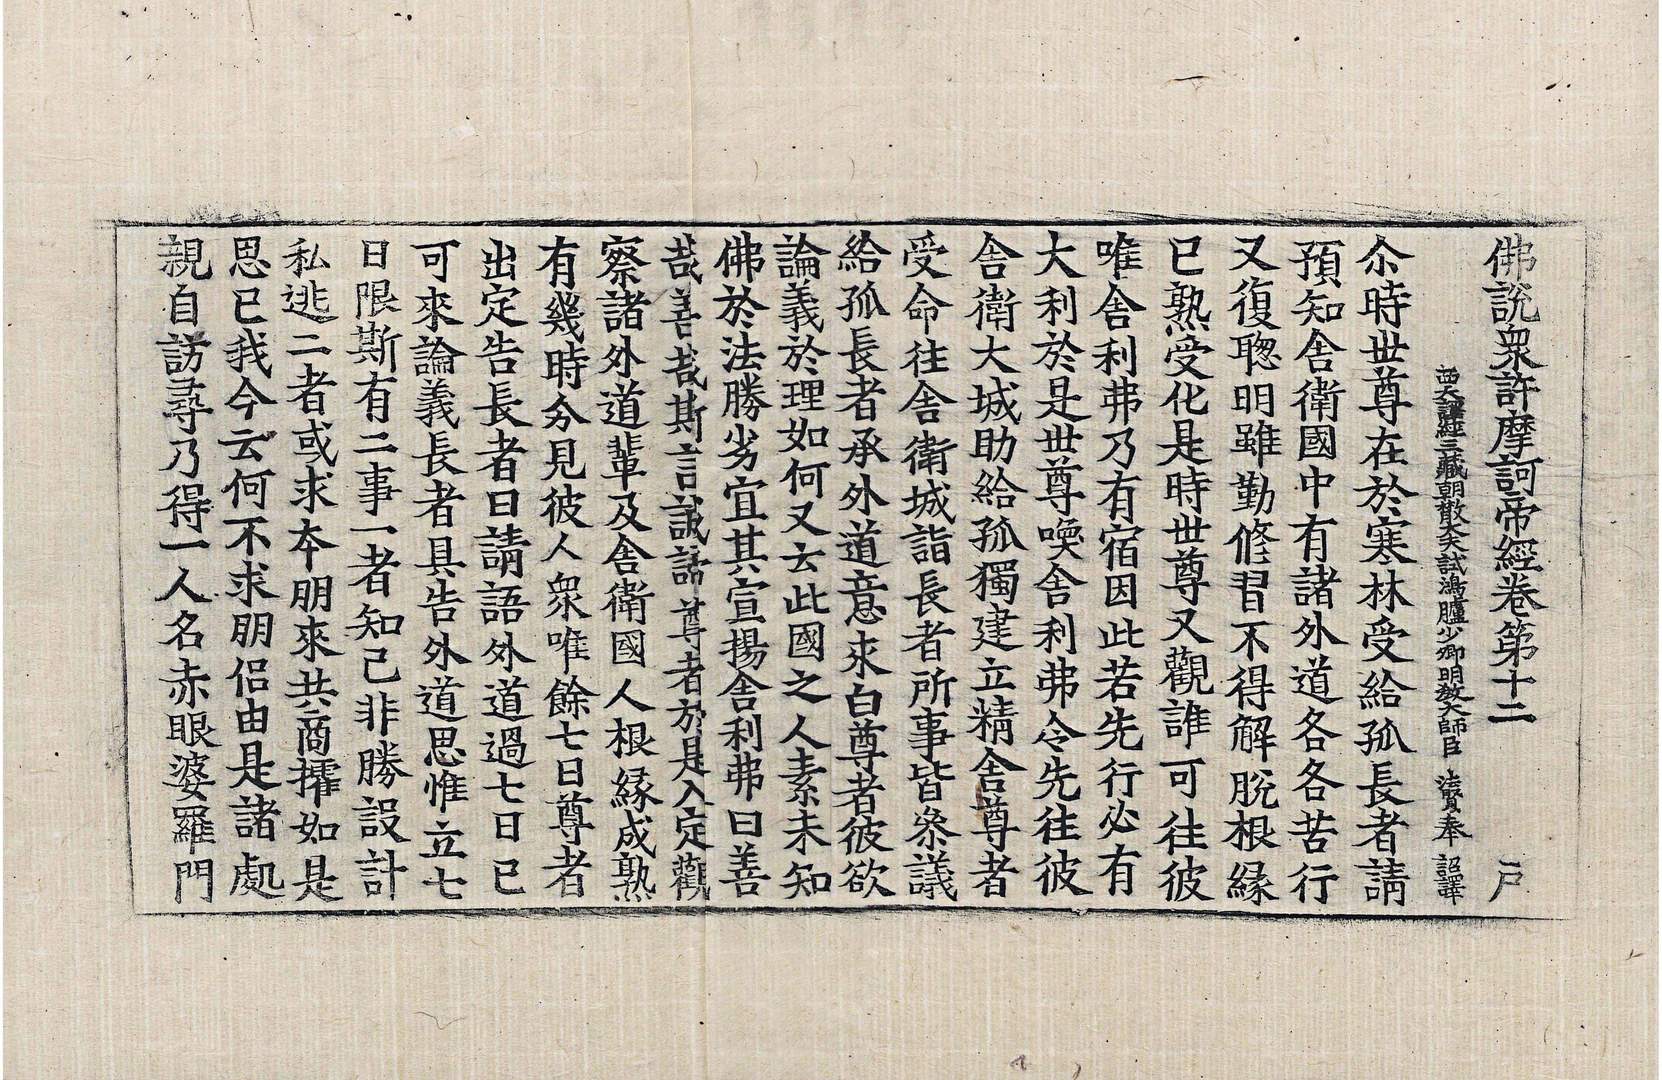 佛說衆許摩訶帝經卷第十二 戶
西天譯經三藏朝散大夫試鴻臚少卿明教大師臣 法賢奉 詔譯
尒時世尊在於寒林受給孤長者請
預知舍衛國中有諸外道各各苦行
又復聰明雖勤修習不得解脫根緣
已熟受化是時世尊又觀誰可往彼
唯舍利弗乃有宿因此若先行必有
大利於是世尊喚舍利弗令先往彼
舍衛大城助給孤獨建立精舍尊者
受命往舍衛城詣長者所事皆叅議
給孤長者承外道意來白尊者彼欲
論義於理如何又云此國之人素未知
佛於法勝劣宜其宣揚舍利弗曰善
哉善哉斯言誠諦尊者於是入定觀
察諸外道輩及舍衛國人根緣成熟
有幾時分見彼人衆唯餘七日尊者
出定告長者曰請語外道過七日已
可來論義長者具告外道思惟立七
日限斯有二事一者知己非勝設計
私逃二者或求本朋來共商搉如是
思已我今云何不求朋侣由是諸處
親自訪尋乃得一人名赤眼婆羅門